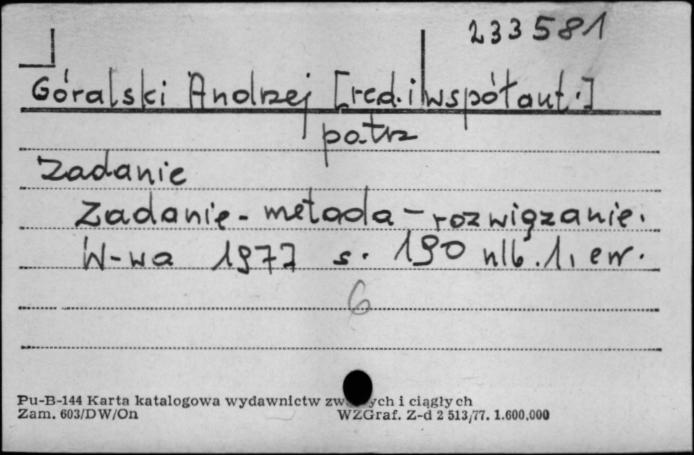 233581
Góralski Andrzej [red. i współaut.]
patrz
Zadanie
Zadanie - metoda - rozwiązanie.
W-wa 1977 s. 190 nlb. 1, err.
6
Pu-B-144 Karta katalogowa wydawnictw zw ych i ciągłych
Zam. 603/DW/On WZGraf. Z-d 2 513/77. 1.600.000